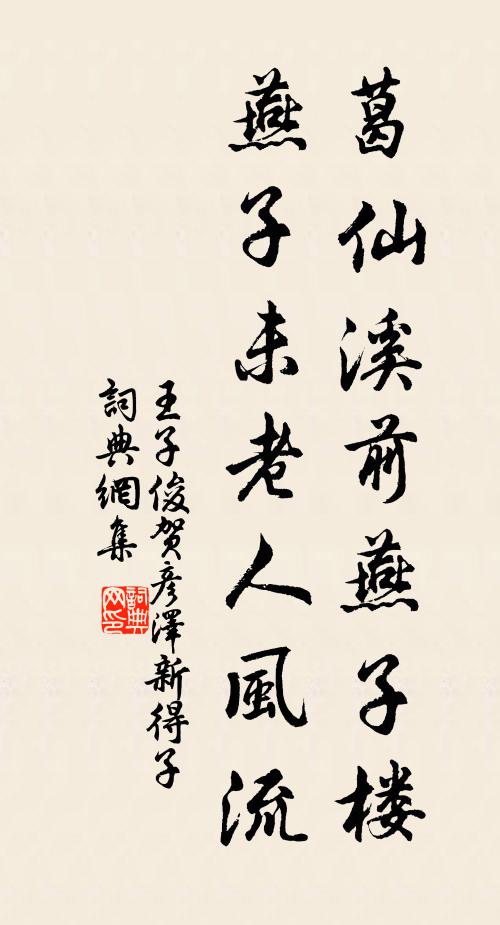 葛仙溪前燕子楼
燕子未老人風流
王子俊賀彦澤新得子
詞典網集
詞典网印